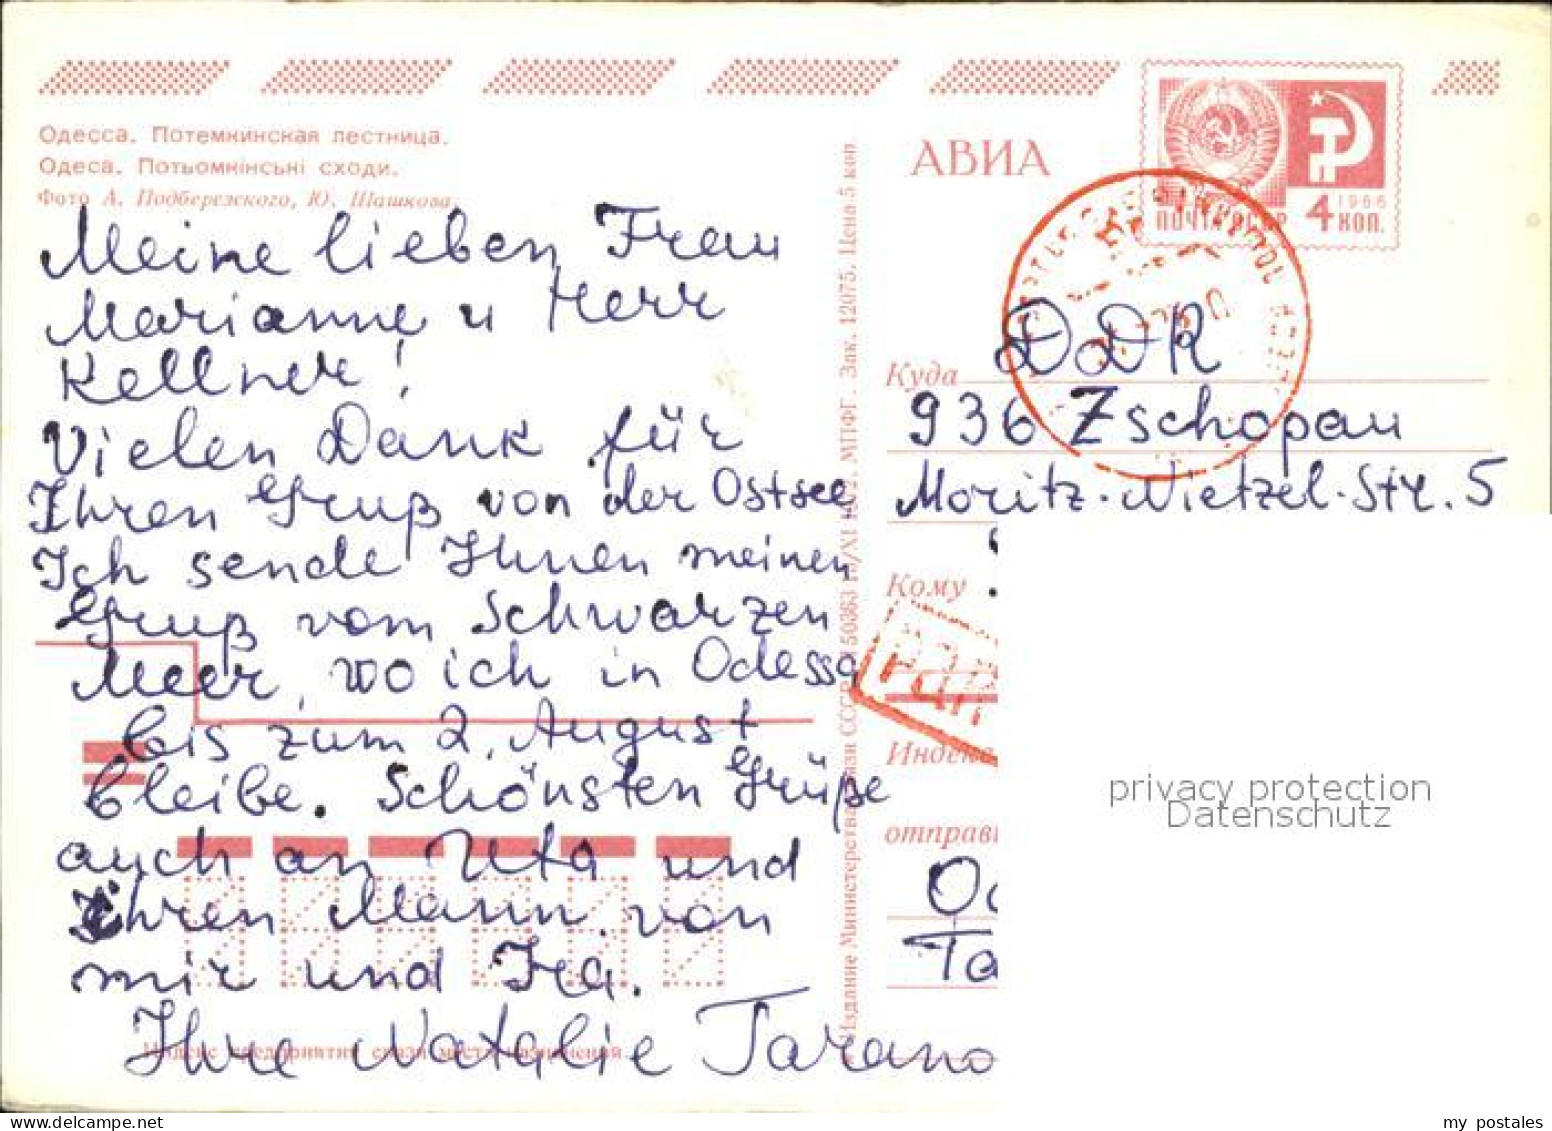 Одесса. Потемкинская лестница.
Одеса. Потьомкінські сходи.
Фото А. Подберезского, Ю. Шашкова.
Meine lieben Frau
Marianne u Herr
Kellner!
Vielen Dank für
Ihren Gruß von der Ostsee
Ich sende Ihnen meinen
Gruß vom Schwarzen
Meer, wo ich in Odessa
bis zum 2. August
bleibe. Schönsten Grüße
auch an Uta und
Ihren Mann von
mir und Ira.
Ihre Natalie Tarano
Индекс предприятия связи места назначения
Издание Министерства связи СССР. 50363 /XI 1972. МПФГ. Зак. 12075. Цена 5 коп.
АВИА
ПОЧТА СССР
1966
4 КОП.
Куда
DDR
936 Zschopau
Moritz-Nietzel-Str. 5
Кому
Индекс
отправи
Od
Ta
privacy protection
Datenschutz
my postales